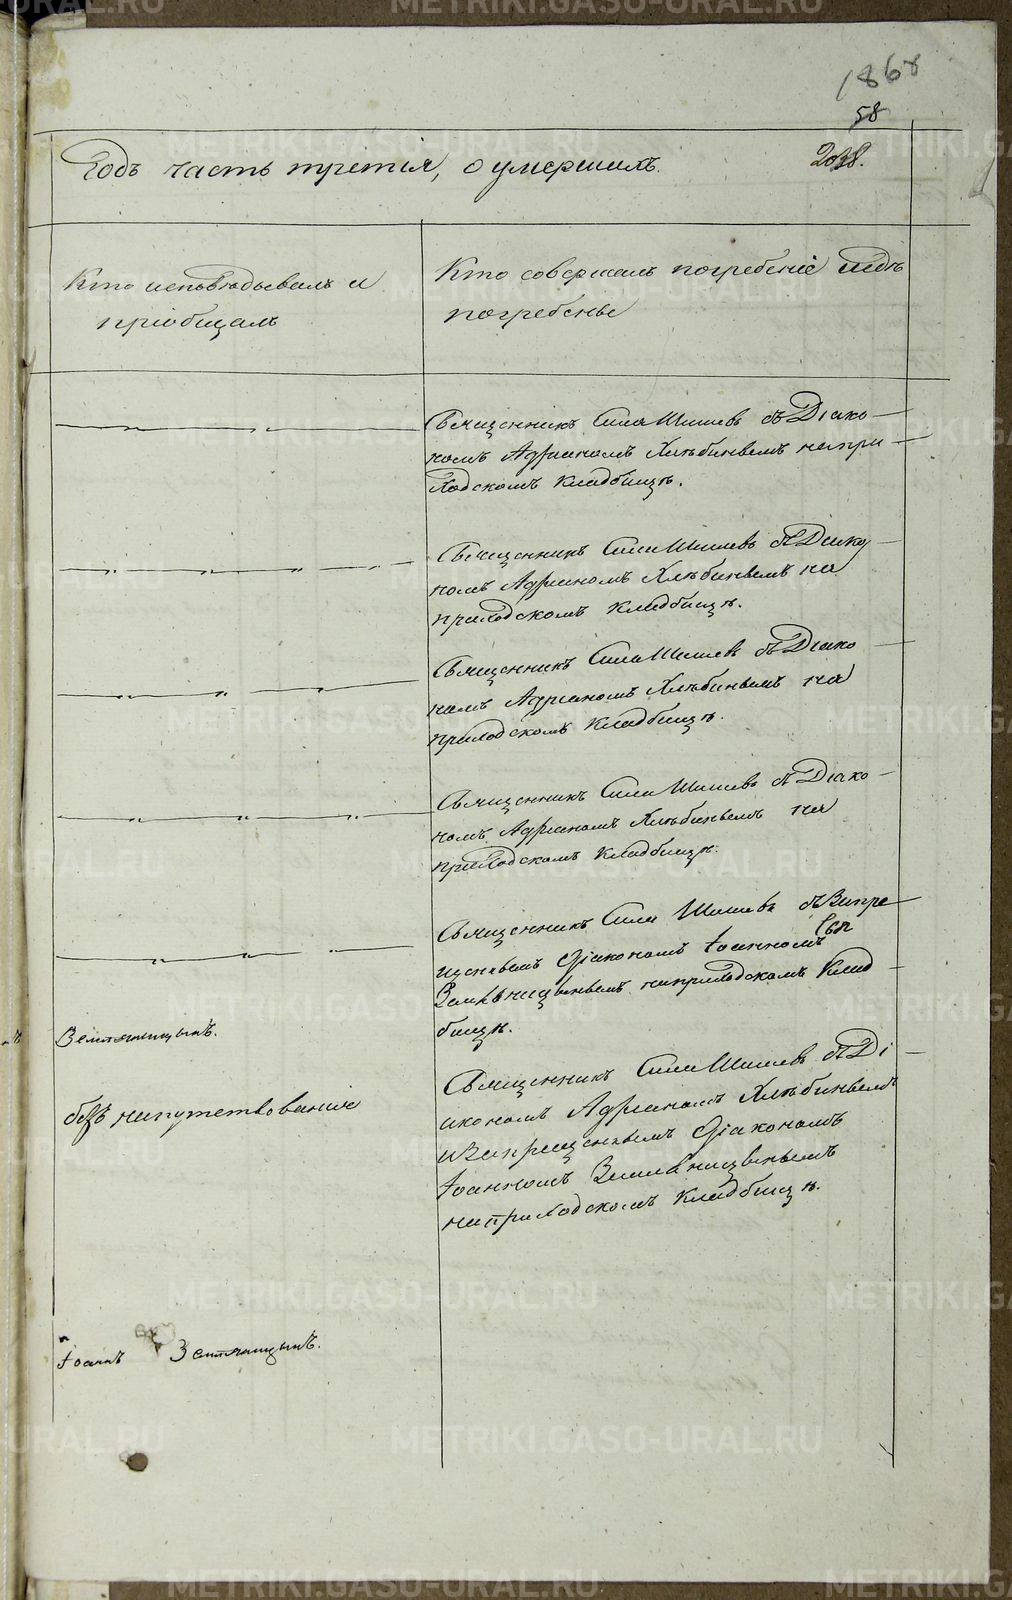 1868
58
Годъ часть третія, о умершихъ.
Кто исповѣдывалъ и
пріобщалъ
Кто совершалъ погребеніе игдѣ
погребены
Священникъ Сила Шишевъ съ Діако
номъ Адріаномъ Хлѣбинымъ напри
ходскомъ кладбищѣ.
Священникъ Сила Шишевъ съ Діако
номъ Адріаномъ Хлѣбинымъ на
приходскомъ кладбищѣ.
Священникъ Сила Шишевъ съ Діако
номъ Адріаномъ Хлѣбинымъ на
приходскомъ кладбищѣ.
Священникъ Сила Шишевъ съ Діако
номъ Адріаномъ Хлѣбинымъ на
приходскомъ кладбищѣ.
Священникъ Сила Шишевъ съ Запре
щеннымъ Діакономъ Іоанномъ
наприходскомъ клад
бищѣ.
Земляницынъ.
безъ напутствованія
Священникъ Сила Шишевъ съ Ді
акономъ Адріаномъ Хлѣбинымъ
и Запрещеннымъ Діакономъ
Іоанномъ
наприходскомъ кладбищѣ.
Іоаннъ Земляницынъ.
METRIKI.GASO-URAL.RU